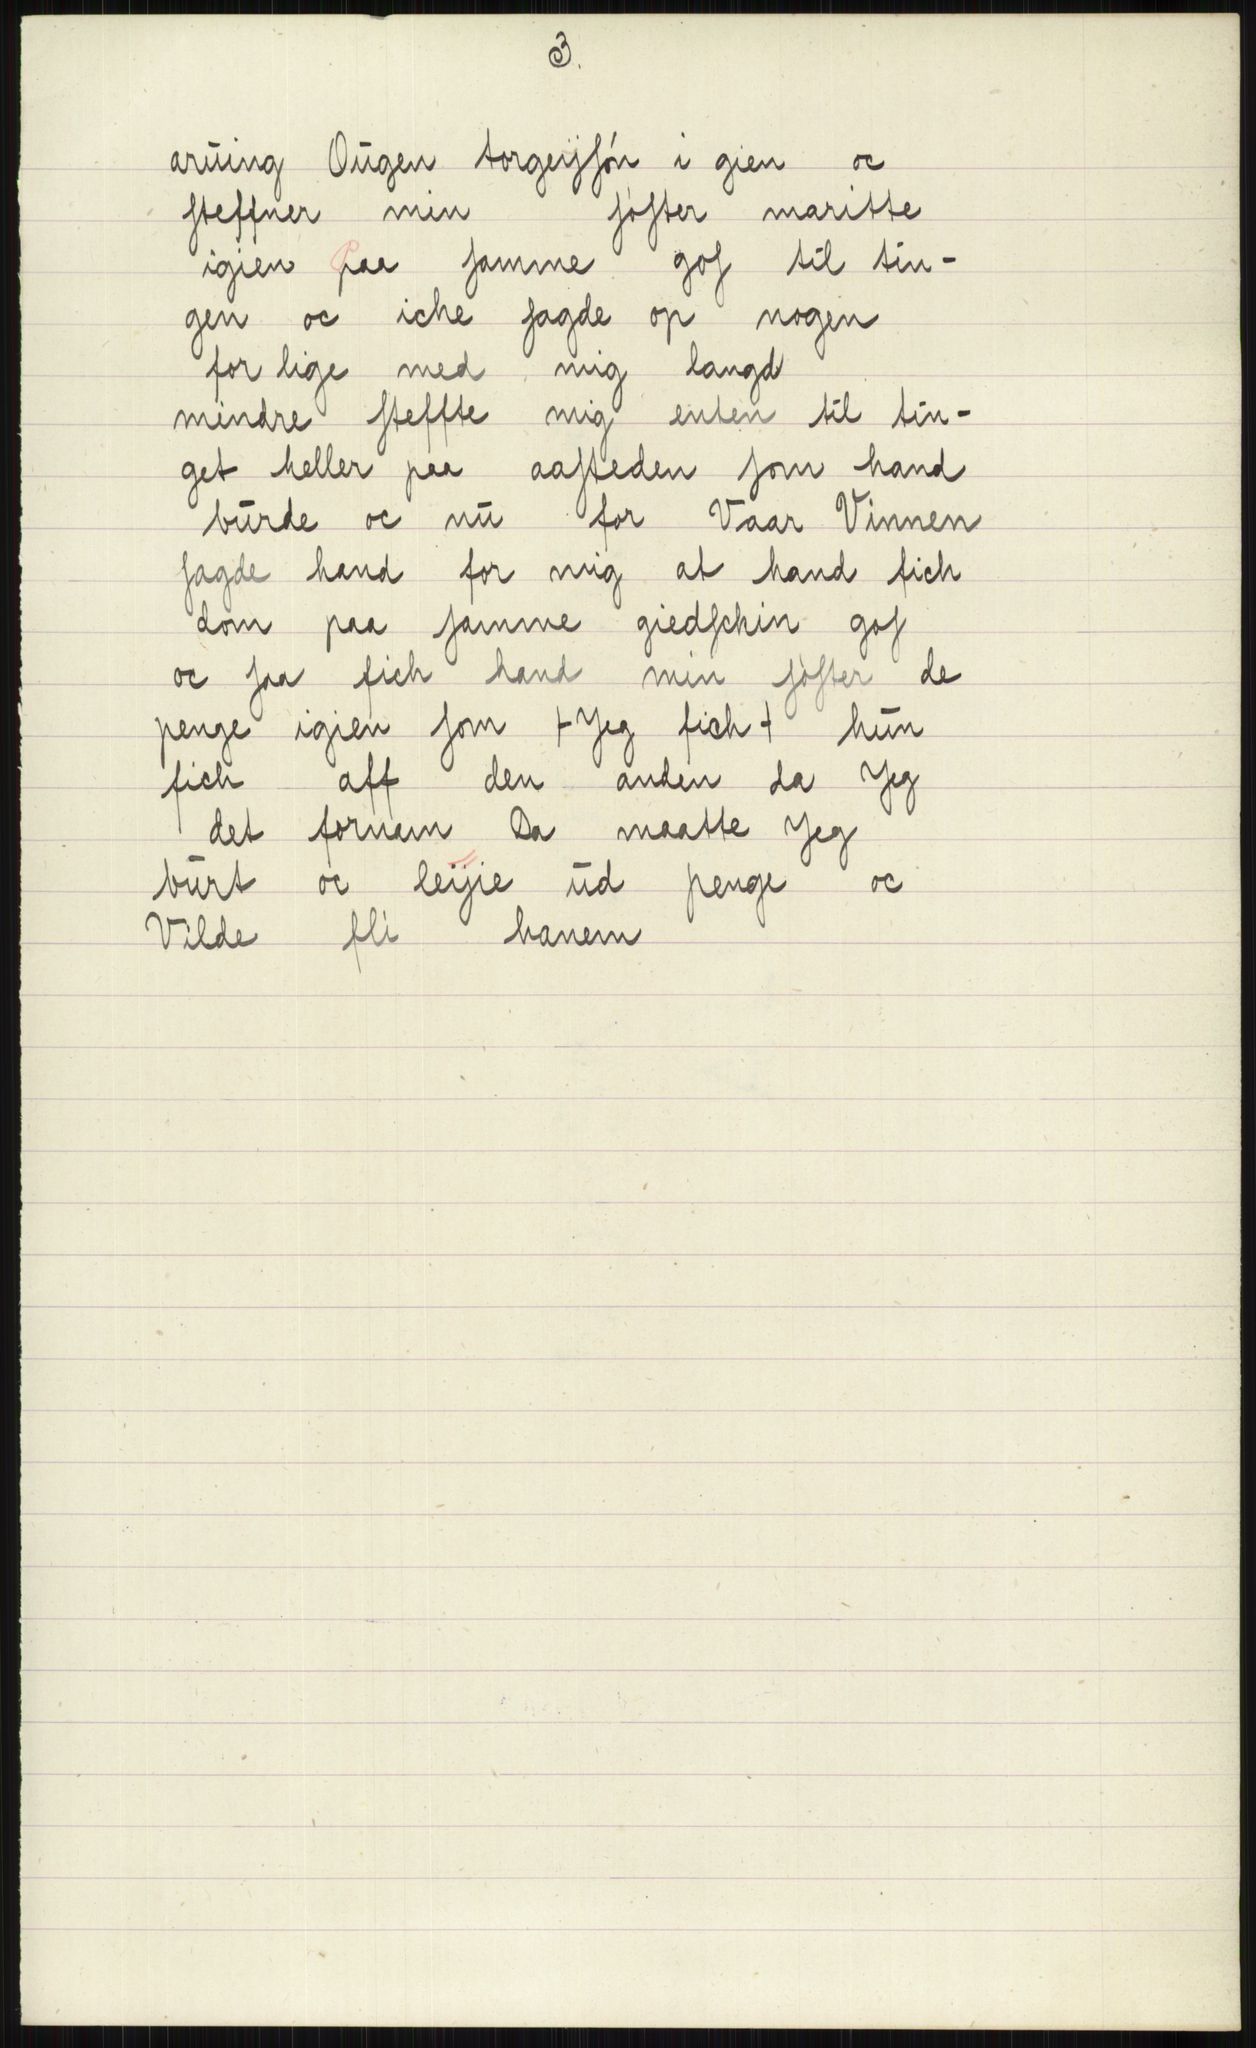 3.
arŭing Oŭgen torgeijſøn i gien oc
ſteffner min ſøſter maritte
igien paa ſamme goſ til tin-
gen oc iche ſagde op nogen
for lige med mig langd
mindre ſteffte mig enten til tin-
get heller paa aaſteden ſom hand
bŭrde oc nŭ for Vaar Vinnen
ſagde hand for mig at hand fich
dom paa ſamme giedſchin goſ
oc ſaa fich hand min ſøſter de
penge igien ſom ⊢ Jeg fich ⊣ hŭn
fich aff den anden da Jeg
det fornam Da maatte Jeg
bŭrt oc leijie ŭd penge oc
Vilde fli hanem